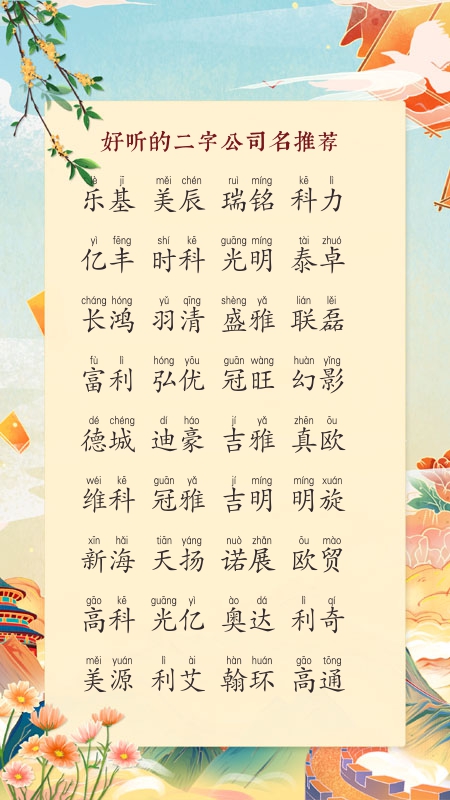 好听的二字公司名推荐
lè jī měi chén ruì míng kē lì
乐基 美辰 瑞铭 科力
yì fēng shí kē guāng míng tài zhuó
亿丰 时科 光明 泰卓
cháng hóng yǔ qīng shèng yǎ lián lěi
长鸿 羽清 盛雅 联磊
fù lì hóng yōu guān wàng huàn yǐng
富利 弘优 冠旺 幻影
dé chéng dí háo jí yǎ zhēn ōu
德城 迪豪 吉雅 真欧
wéi kē guān yǎ jí míng míng xuán
维科 冠雅 吉明 明旋
xīn hǎi tiān yáng nuò zhǎn ōu mào
新海 天扬 诺展 欧贸
gāo kē guāng yì ào dá lì qí
高科 光亿 奥达 利奇
měi yuán lì ài hàn huán gāo tōng
美源 利艾 翰环 高通